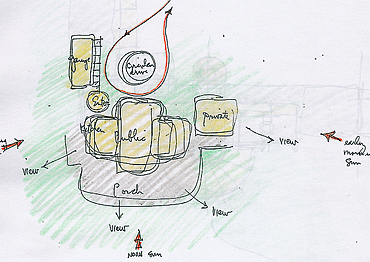 Garage
Garden
drive
Kitchen
Public
Private
View
View
early
morning
sun
Porch
View
View
noon sun